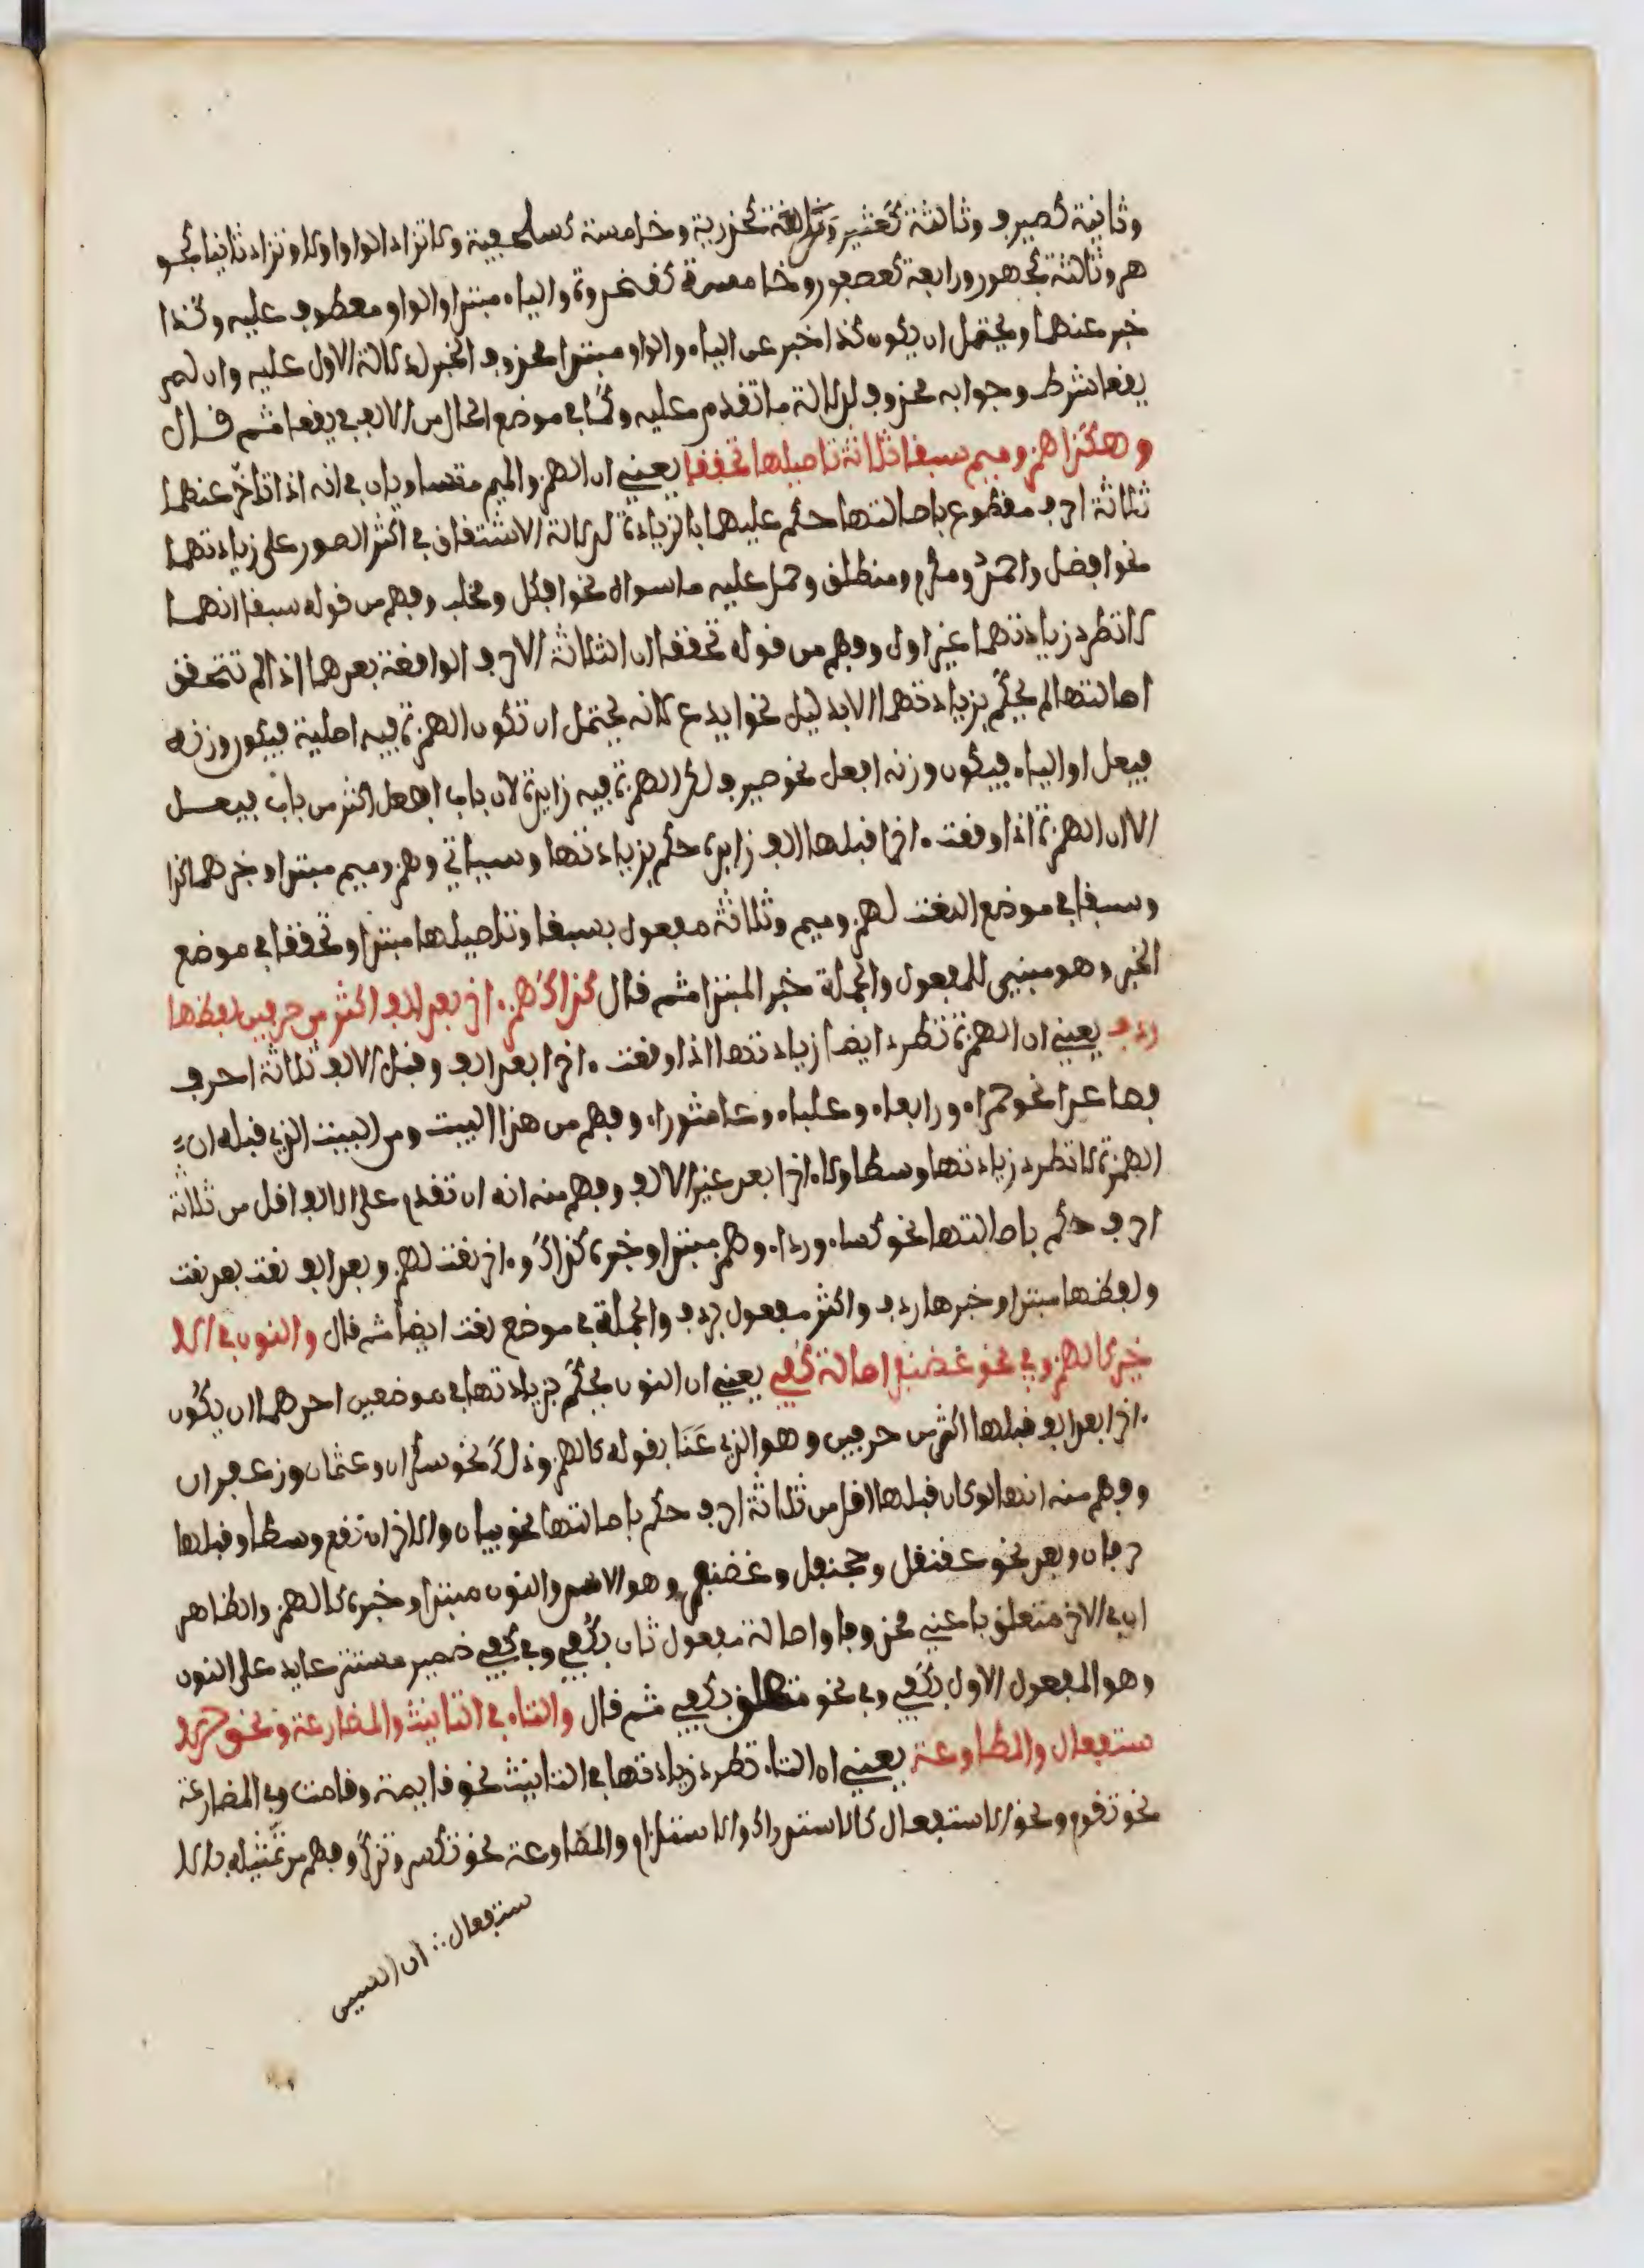 وثانية كصيرف وثالثة كعثير ورابعة كحذرية وخامسة كسلحفية ولا تزاد الواو اولا وتزاد ثانيا كجو
هر وثالثة كجهور ورابعة كعصفور وخامسة كقمحدوة والياء مبتدا والواو معطوف عليه وكذا
خبر عنهما ويحتمل ان يكون كذا خبر عن الياء والواو مبتدا محذوف الخبر لدلالة الاول عليه وان لم
يقعا شرط وجوابه محذوف لدلالة ما تقدم عليه وكما في موضع الحال من الالف في يقعا ثم قال
وهكذا همز وميم سبقا ثلاثة تاصيلها تحققا يعني ان الهمز والميم متساويان في انه اذا تاخر عنهما
ثلاثة احرف مقطوع باصالتها حكم عليهما بالزيادة لدلالة الاشتقاق في اكثر الصور على زيادتهما
نحو افضل واحمر ومكرم ومنطلق وحمل عليه ما سواه نحو افكل ومخلب وفهم من قوله سبقا انهما
لا تطرد زيادتهما غير اول وفهم من قوله تحققا ان الثلاثة الاحرف الواقعة بعدهما اذا لم تتحقق
اصالتها لم يحكم بزيادتهما الا بدليل نحو ايدع لانه يحتمل ان تكون الهمزة فيه اصلية فيكون وزنه
فيعل او الياء فيكون وزنه افعل نحو صيرف لكن الهمزة فيه زايدة لان باب افعل اكثر من باب فيعل
الا ان الهمزة اذا وقعت ءاخرا قبلها الف زايدة حكم بزيادتها وسياتي وهمز وميم مبتدا وخبرهما كذا
وسبقا في موضع النعت لهمز وميم وثلاثة مفعول بسبقا وتاصيلها مبتدا وتحققا في موضع
الخبر وهو مبني للمفعول والجملة خبر المبتدا ثم قال كذاك همز ءاخر بعد الف اكثر من حرفين لفظها
ردف يعني ان الهمزة تطرد ايضا زيادتها اذا وقعت ءاخرا بعد الف وقبل الالف ثلاثة احرف
فصاعدا نحو حمراء ورابعاء وعلباء وعاشوراء وفهم من هذا البيت ومن البيت الذي قبله ان
الهمزة لا تطرد زيادتها وسطا ولا ءاخرا بعد غير الالف وفهم منه انه ان تقدم على الالف اقل من ثلاثة
احرف حكم باصالتها نحو كساء ورداء وهمز مبتدا وخبره كذاك وءاخر نعت لهمز وبعد الف نعت بعد نعت
ولفظها مبتدا وخبرها ردف واكثر مفعول بردف والجملة في موضع نعت ايضا ثم قال والنون في الا
خير كالهمز وفي نحو غضنفر اصالة كفي يعني ان النون يحكم بزيادتها في موضعين احدهما ان يكون
ءاخرا بعد الف قبلها اكثر من حرفين وهو الذي عنا بقوله كالهمز وذلك نحو سكران وعثمان وزعفران
وفهم منه انها لو كان قبلها اقل من ثلاثة احرف حكم باصالتها نحو بيان والاخر ان تقع وسطا وقبلها
حرفان وبعد نحو عقنقل وجحنفل وغضنفر وهو الاسد والنون مبتدا وخبره كالهمز والظاهر
ان في الاخر متعلق باعني محذوفا واصالة مفعول ثان بكفي وفي كفي ضمير مستتر عايد على النون
وهو المفعول الاول بكفي وفي نحو متعلق بكفي ثم قال والتاء في التانيث والمضارعة ونحو الا
ستفعال والمطاوعة يعني ان التاء تطرد زيادتها في التانيث نحو قايمة وقامت وفي المضارعة
نحو تقوم ونحو الاستفعال كالاستدراك والاستلزام والمطاوعة نحو تكسر وتذكر وفهم من تمثيله بالا
ستفعال ∴ ان السين